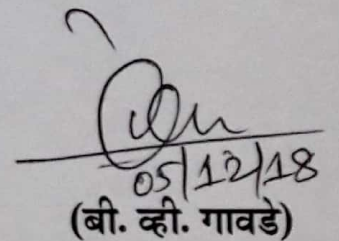 05/12/18
(बी. व्ही. गावडे)